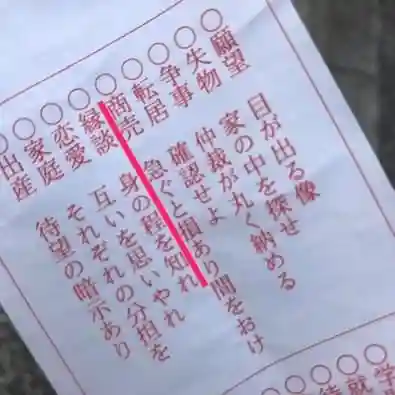 ○願望 目が出る像
○失物 家の中を探せ
○争事 仲裁が丸く納める
○転居 確認せよ間をおけ
○商売 急ぐと損あり
○縁談 身の程を知れ
○恋愛 互いを思いやれ
○家庭 それぞれの分担を
○出産 待望の暗示あり